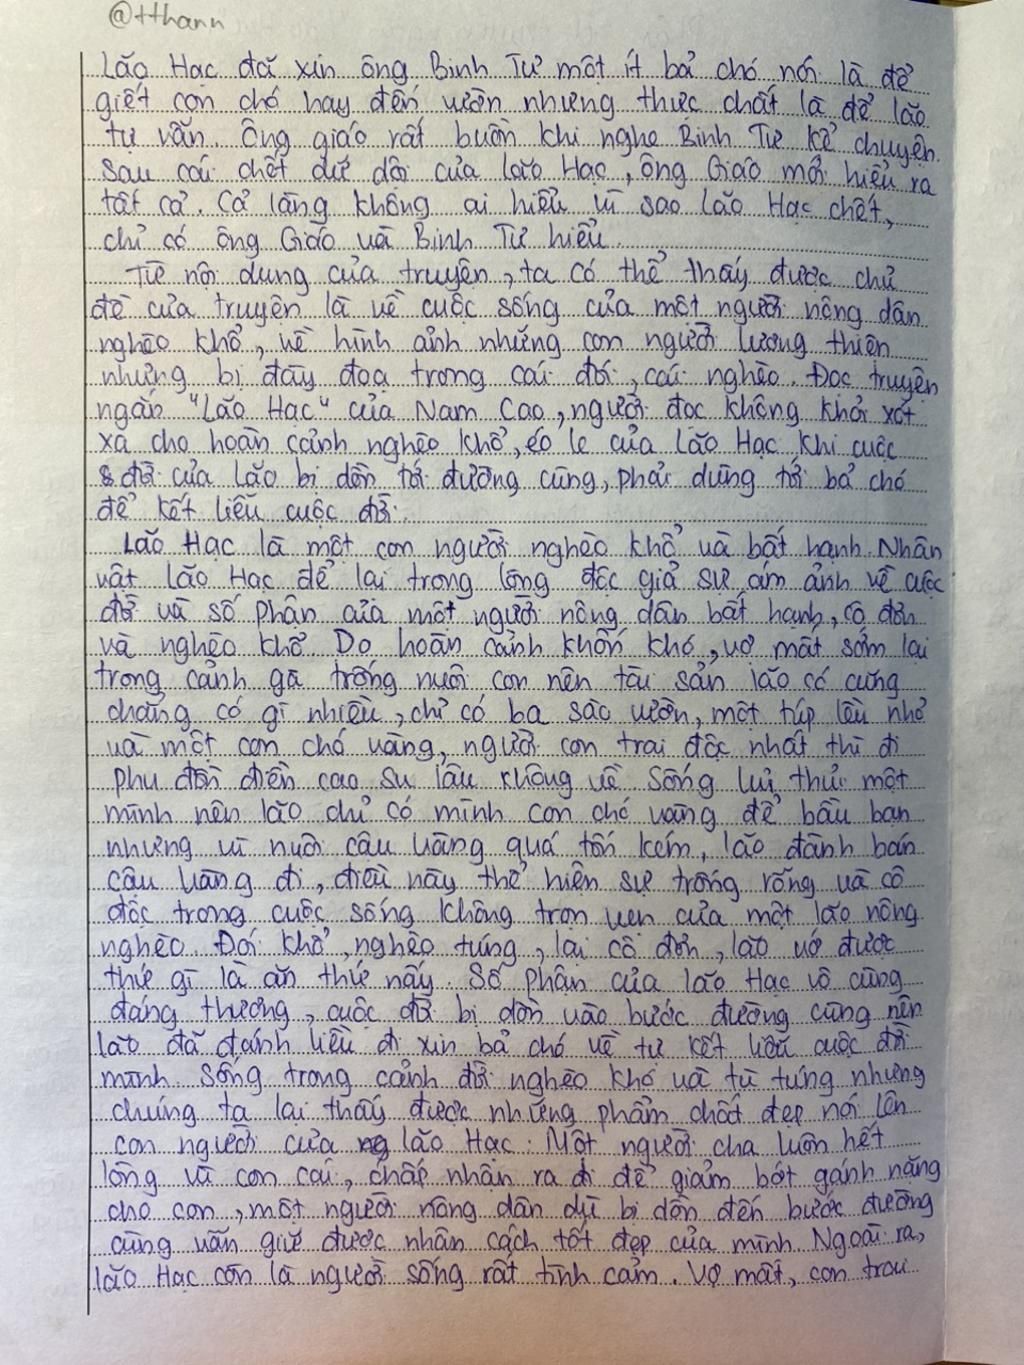 @tthann
Lão Hạc đã xin ông Binh Tư một ít bả chó nói là để
giết con chó hay đến vườn nhưng thực chất là để lão
tự vẫn. Ông giáo rất buồn khi nghe Binh Tư kể chuyện.
Sau cái chết dữ dội của lão Hạc, ông Giáo mới hiểu ra
tất cả. Cả làng không ai hiểu vì sao lão Hạc chết,
chỉ có ông Giáo và Binh Tư hiểu.
Từ nội dung của truyện, ta có thể thấy được chủ
đề của truyện là về cuộc sống của một người nông dân
nghèo khổ, về hình ảnh những con người lương thiện
nhưng bị đày đọa trong cái đói, cái nghèo. Đọc truyện
ngắn "Lão Hạc" của Nam Cao, người đọc không khỏi xót
xa cho hoàn cảnh nghèo khổ, éo le của Lão Hạc khi cuộc
đời của lão bị dồn tới đường cùng, phải dùng tới bả chó
để kết liễu cuộc đời.
Lão Hạc là một con người nghèo khổ và bất hạnh. Nhân
vật lão Hạc để lại trong lòng độc giả sự ám ảnh về cuộc
đời và số phận của một người nông dân bất hạnh, cô đơn
và nghèo khổ. Do hoàn cảnh khốn khó, vợ mất sớm lại
trong cảnh gà trống nuôi con nên tài sản lão có cũng
chẳng có gì nhiều, chỉ có ba sào vườn, một túp lều nhỏ
và một con chó vàng, người con trai độc nhất thì đi
phu đồn điền cao su lâu không về. Sống lủi thủi một
mình nên lão chỉ có mình con chó vàng để bầu bạn
nhưng vì nuôi cậu Vàng quá tốn kém, lão đành bán
cậu Vàng đi, điều này thể hiện sự trống rỗng và cô
độc trong cuộc sống không trọn vẹn của một lão nông
nghèo. Đói khổ, nghèo túng, lại cô đơn, lão vớ được
thứ gì là ăn thứ nấy. Số phận của lão Hạc vô cùng
đáng thương, cuộc đời bị dồn vào bước đường cùng nên
lão đã đánh liều đi xin bả chó về tự kết liễu cuộc đời
mình. Sống trong cảnh đời nghèo khó và tù túng nhưng
chúng ta lại thấy được những phẩm chất đẹp nơi lên
con người của lão Hạc. Một người cha luôn hết
lòng vì con cái, chấp nhận ra đi để giảm bớt gánh nặng
cho con, một người nông dân dù bị dồn đến bước đường
cùng vẫn giữ được nhân cách tốt đẹp của mình. Ngoài ra,
lão Hạc còn là người sống rất tình cảm. Vợ mất, con trai